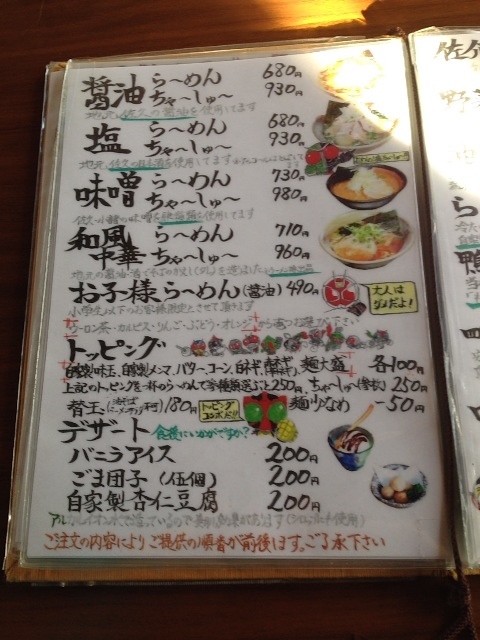 醤油 ら〜めん 680円
ちゃ〜しゅ〜 930円
地元、佐久の醤油を使用してます
塩 ら〜めん 680円
ちゃ〜しゅ〜 930円
地元、佐久の日本酒を使用してます
味噌 ら〜めん 730円
ちゃ〜しゅ〜 980円
佐久・小諸の味噌を使用してます
和風中華 ら〜めん 710円
ちゃ〜しゅ〜 960円
お子様ら〜めん(醤油) 490円
大人はダメだよ!
小学生以下のお客様限定とさせて頂きます
ウーロン茶・カルピス・りんご・ぶどう・オレンジから1つお選び下さい
トッピング
自家製味玉、自家製メンマ、バター、コーン、白ネギ、青ネギ、麺大盛 各100円
上記のトッピングを一杯のら〜めんで3種類選ぶと250円、ちゃ〜しゅ〜 250円
替玉 180円 トッピングコンボだ!! 麺少なめ -50円
デザート 食後にいかがですか?
バニラアイス 200円
ごま団子(伍個) 200円
自家製杏仁豆腐 200円
ご注文の内容によりご提供の順番が前後します。ご了承下さい
佐久
野菜
ら
鴨